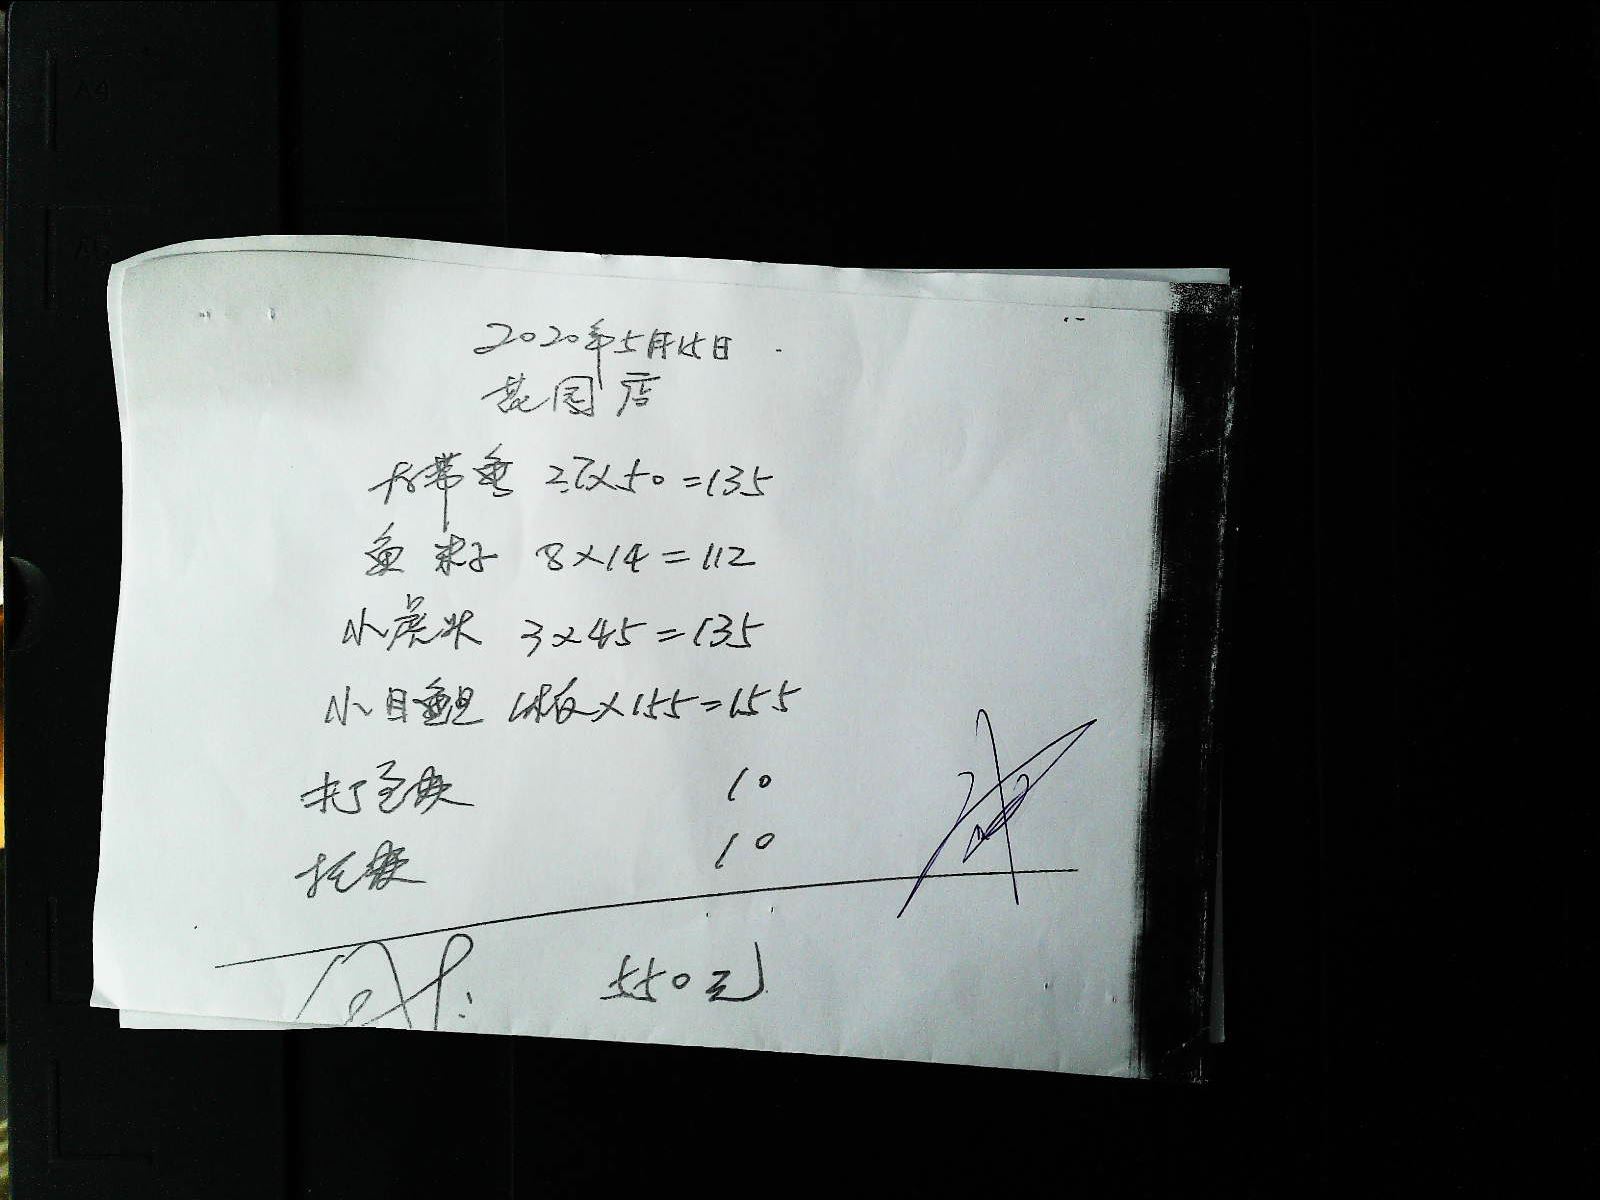 2020年5月15日
花园店
大带鱼 2.7×50=135
鱼籽 8×14=112
小虎头 3×45=135
小目鱼旦 1板×155=155
打包费 10
托费 10
550元